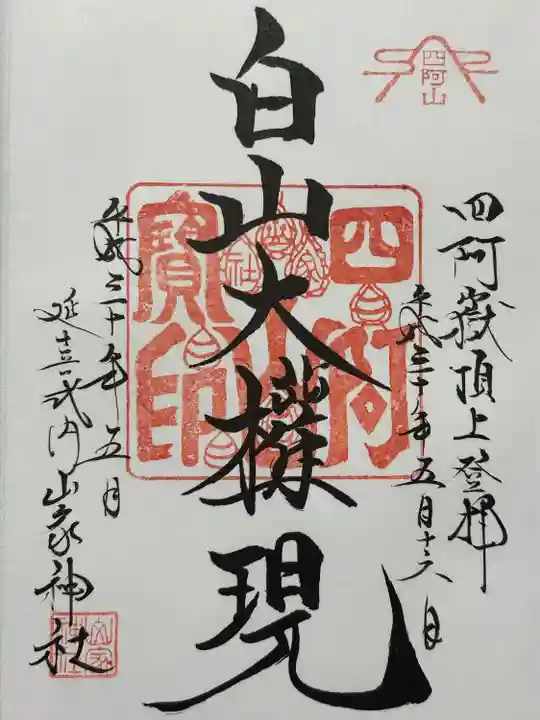 四阿山
四阿嶽頂上登拝
平成三十年五月十六日
白山大権現
四阿山
寶印
平成三十年五月
延喜式内山家神社
山家
神社